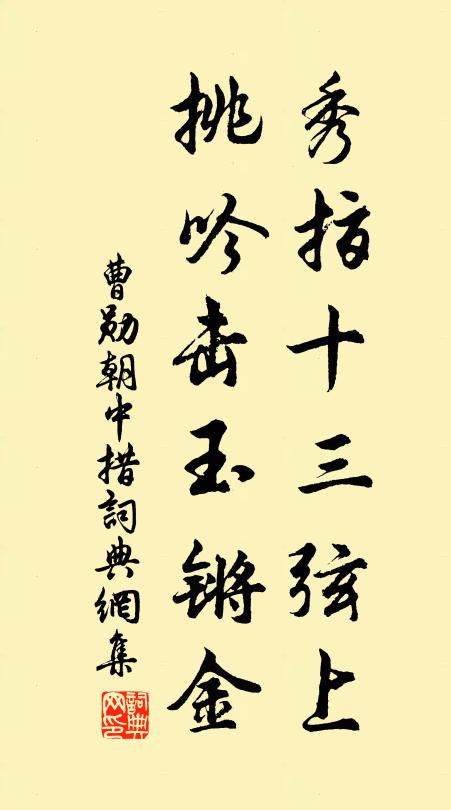 秀指十三弦上
挑吟击玉锵金
曹勋朝中措詞典網集
詞典網印